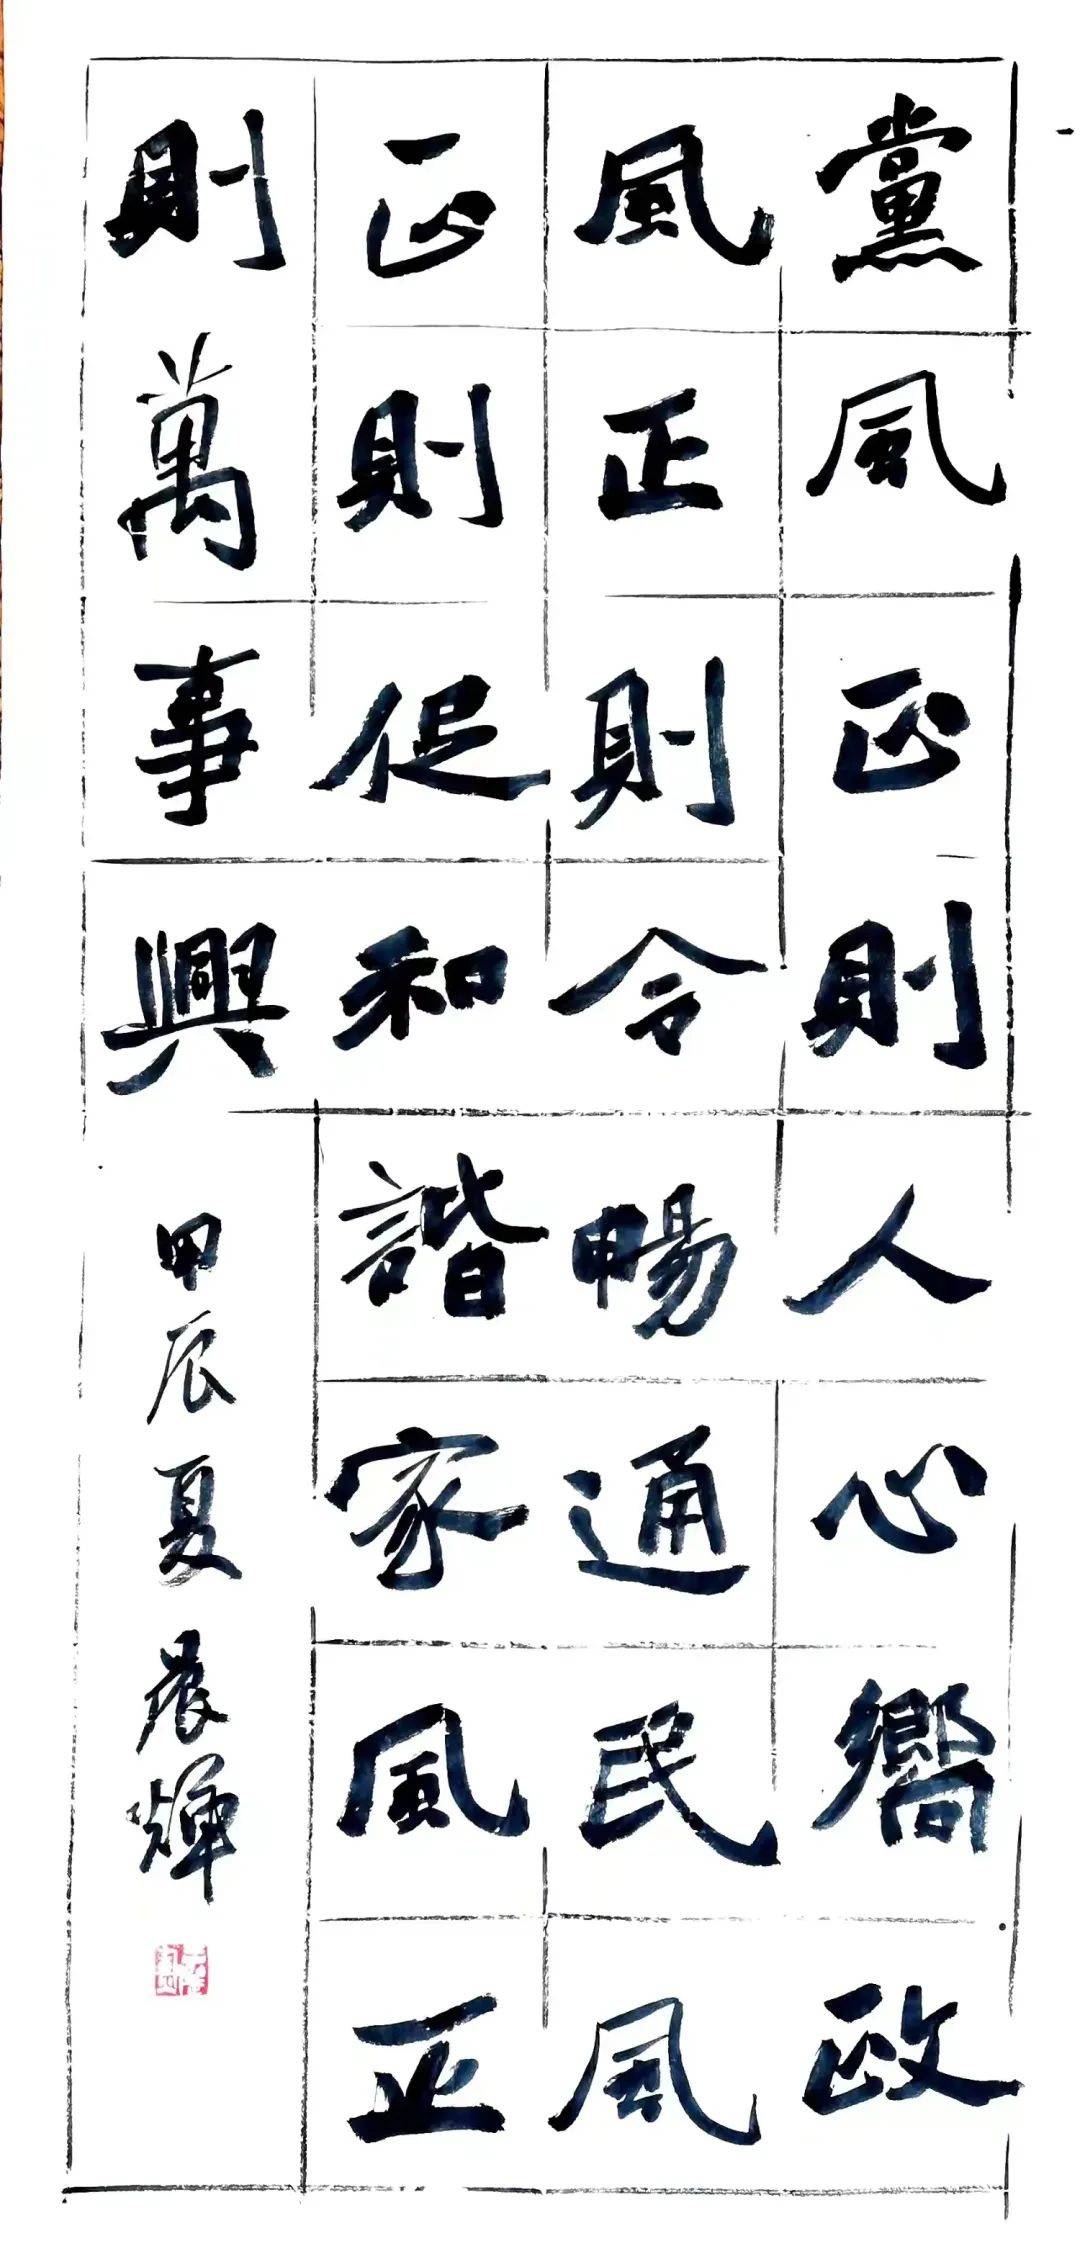 黨風正則人心嚮政
風正則令暢通民風
正則促和諧家風正
則萬事興
甲辰夏晨煇